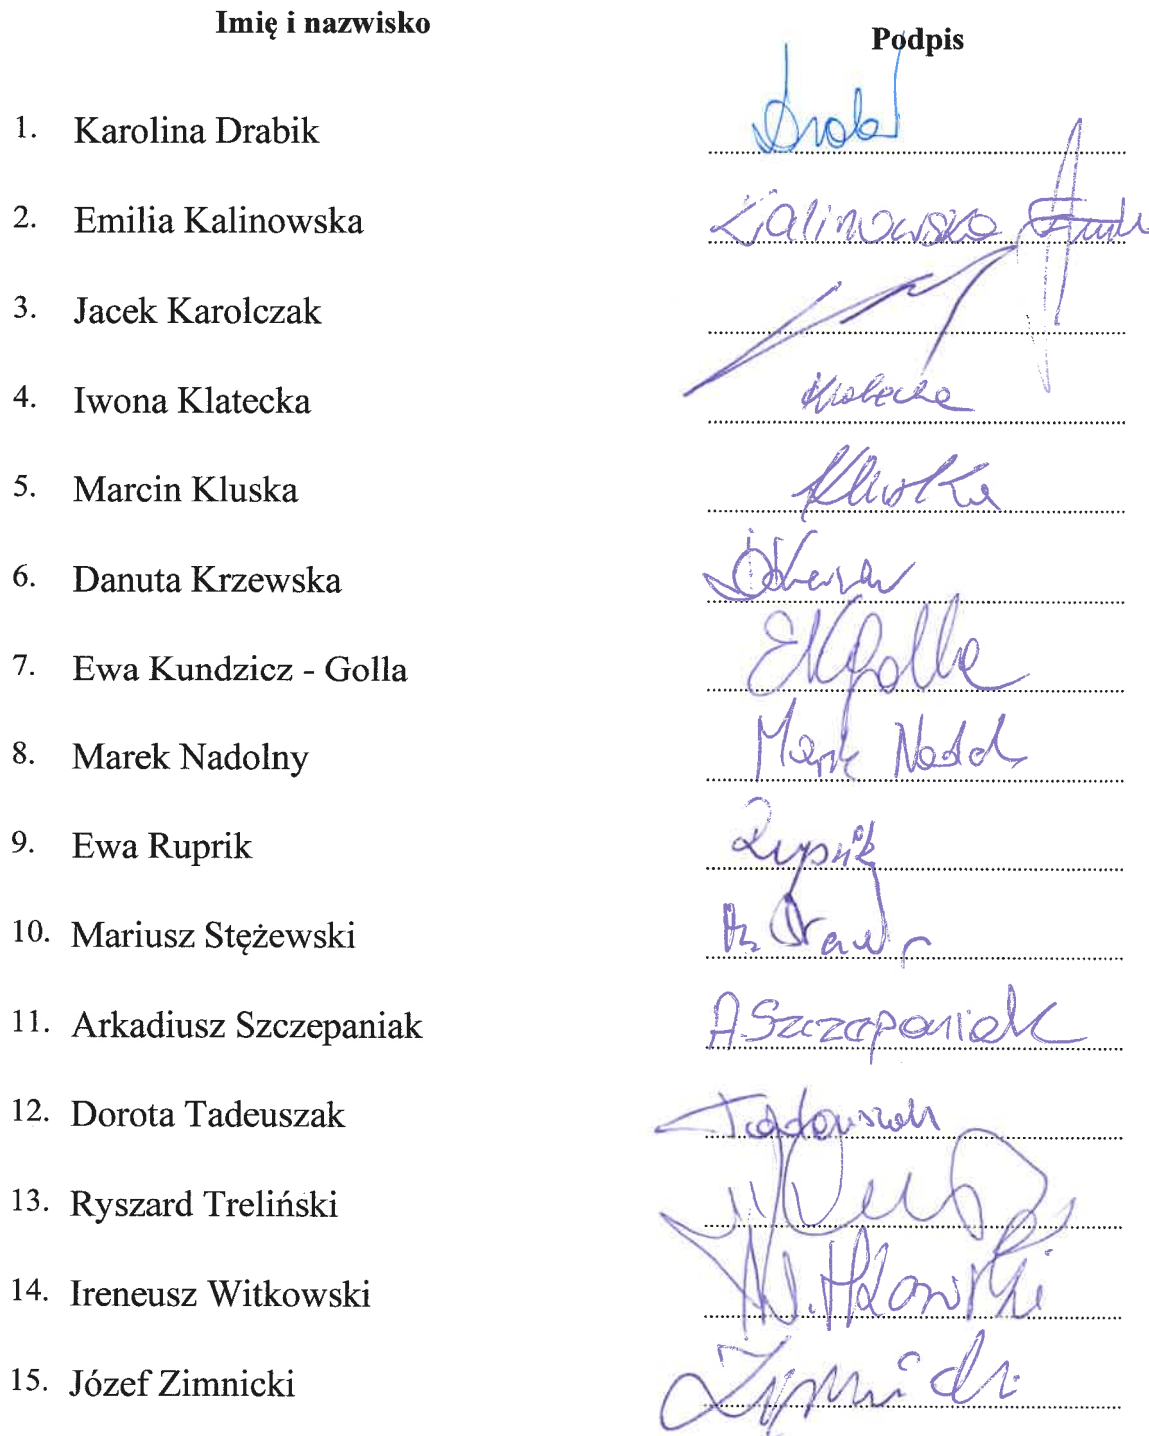 Imię i nazwisko Podpis
1. Karolina Drabik
2. Emilia Kalinowska Kalinowska
3. Jacek Karolczak
4. Iwona Klatecka Klatecka
5. Marcin Kluska Kluska
6. Danuta Krzewska
7. Ewa Kundzicz - Golla EKGolla
8. Marek Nadolny Marek
9. Ewa Ruprik Ruprik
10. Mariusz Stężewski
11. Arkadiusz Szczepaniak A Szczepaniak
12. Dorota Tadeuszak Tadeuszak
13. Ryszard Treliński
14. Ireneusz Witkowski
15. Józef Zimnicki